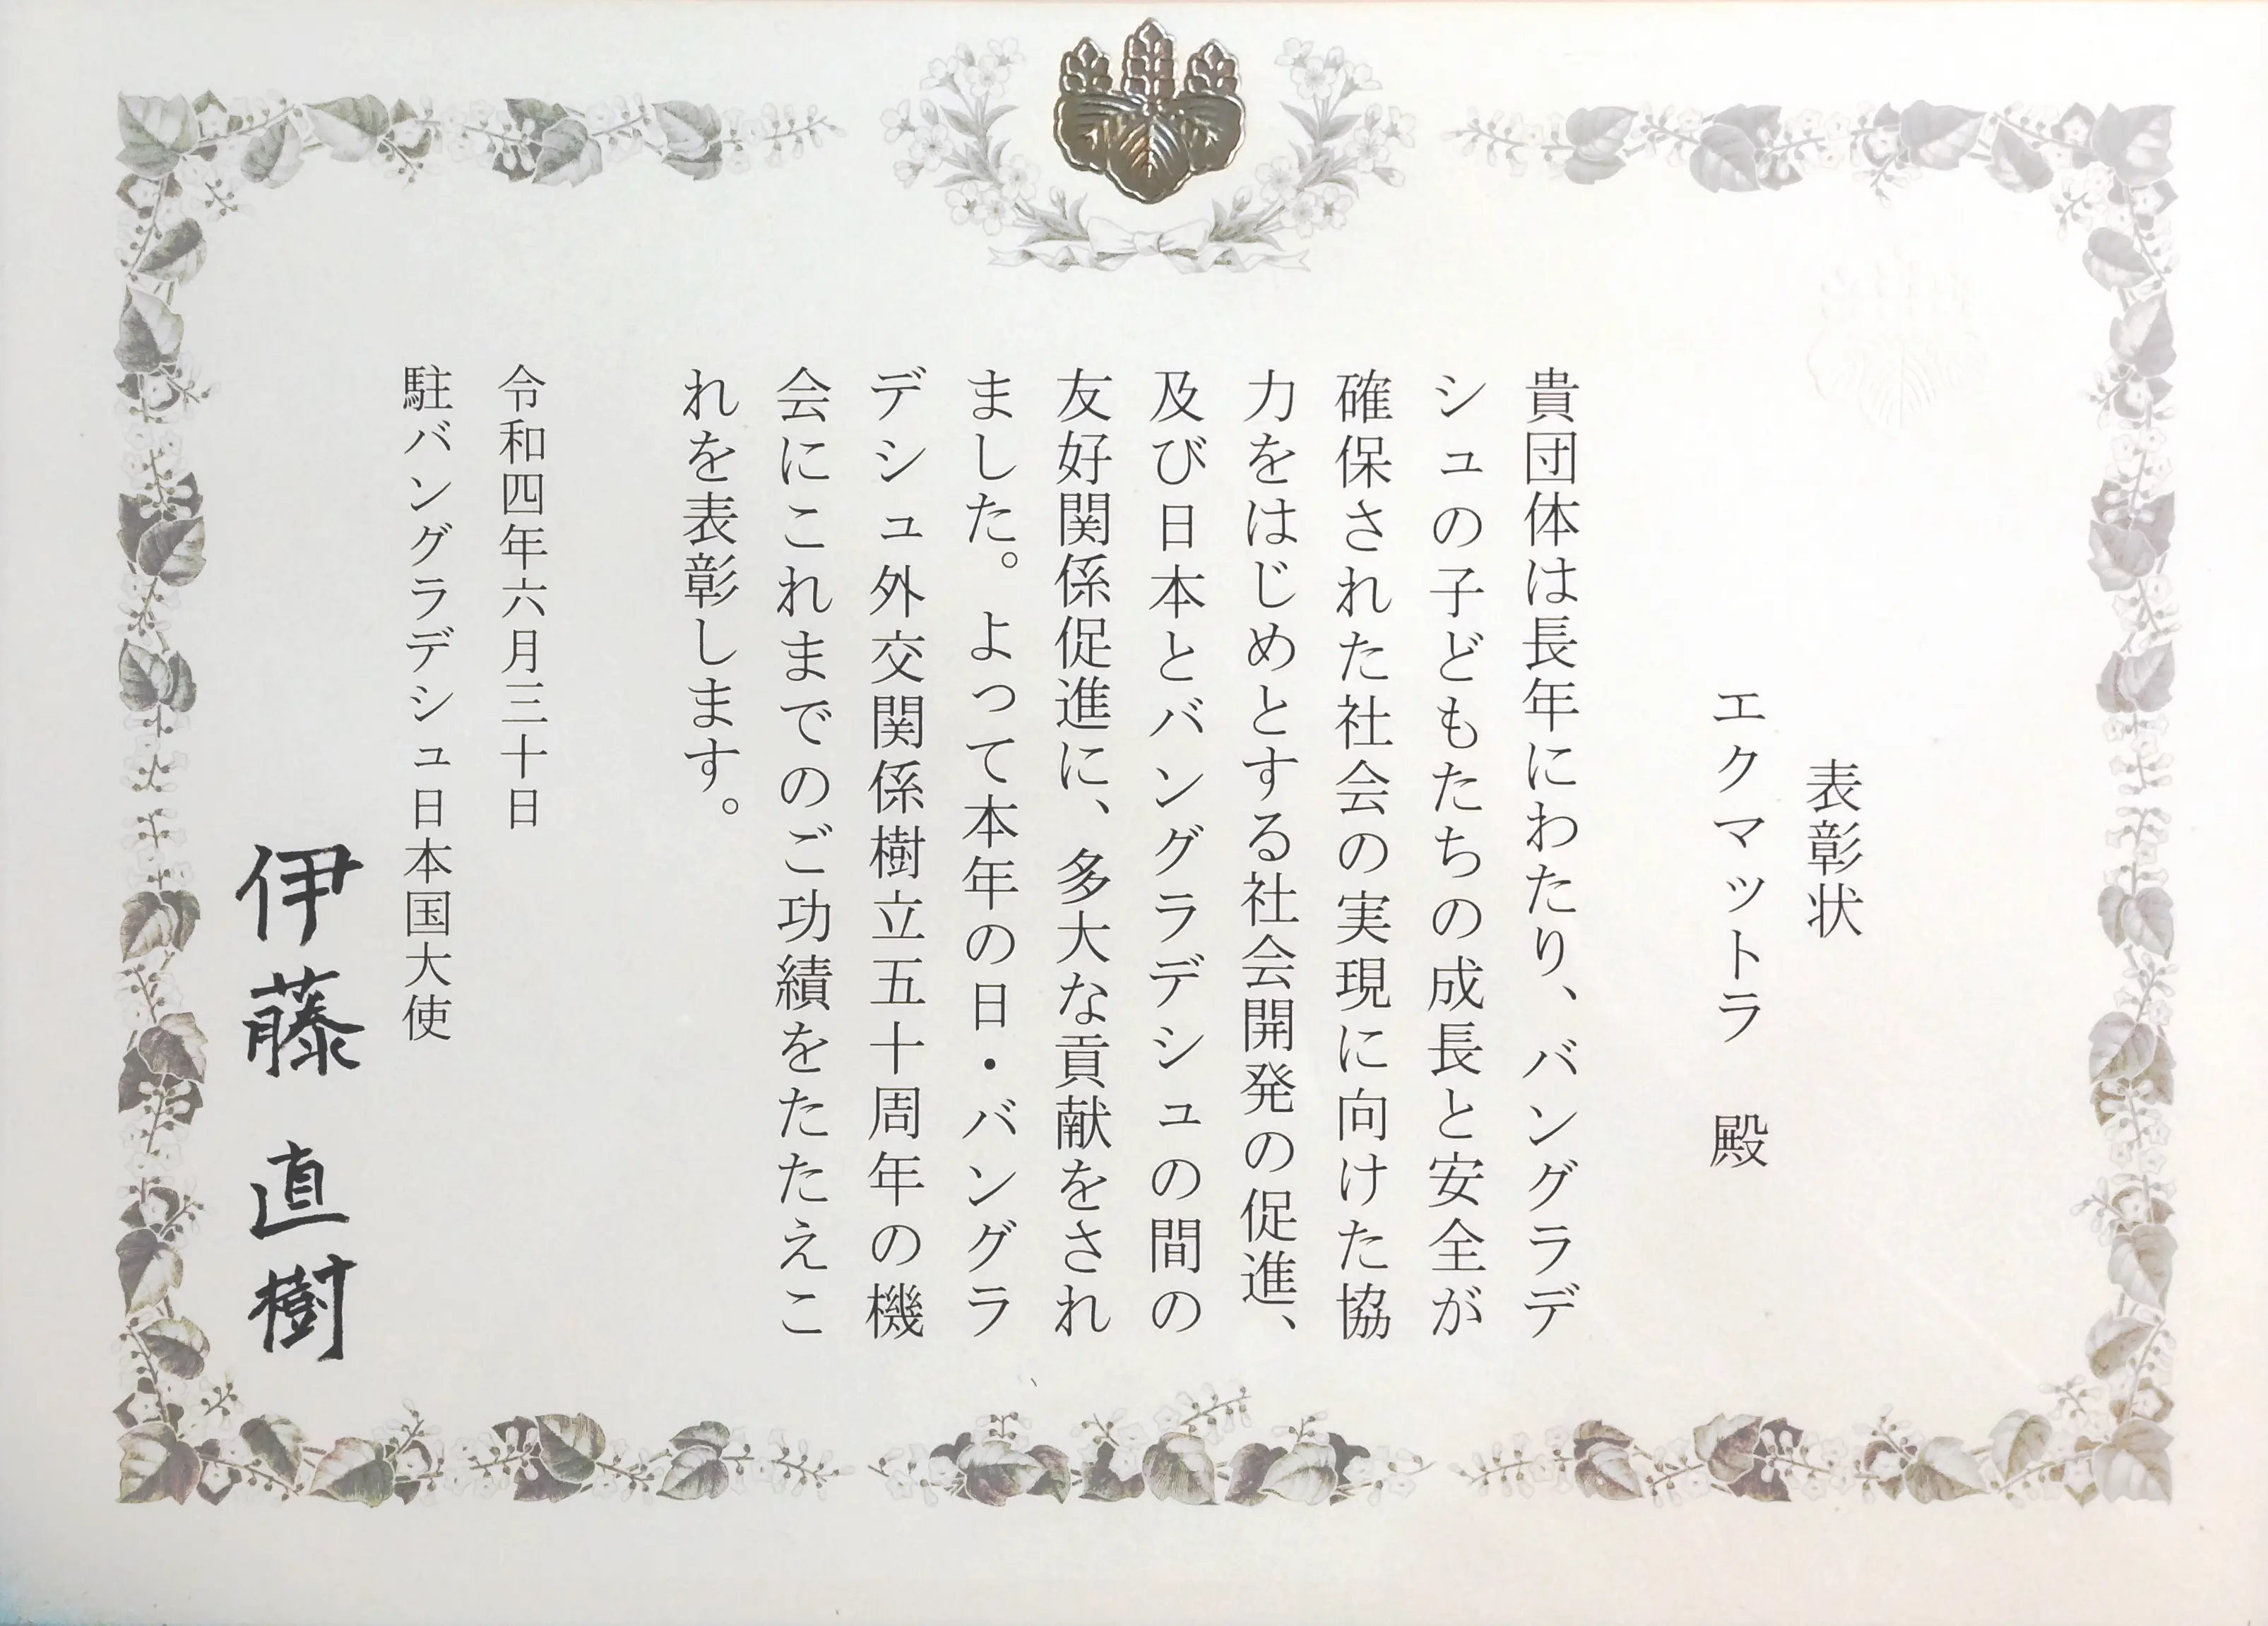 表彰状
エクマットラ　殿
貴団体は長年にわたり、バングラデ
シュの子どもたちの成長と安全が
確保された社会の実現に向けた協
力をはじめとする社会開発の促進、
及び日本とバングラデシュの間の
友好関係促進に、多大な貢献をされ
ました。よって本年の日・バングラ
デシュ外交関係樹立五十周年の機
会にこれまでのご功績をたたえこ
れを表彰します。
令和四年六月三十日
駐バングラデシュ日本国大使
伊藤直樹